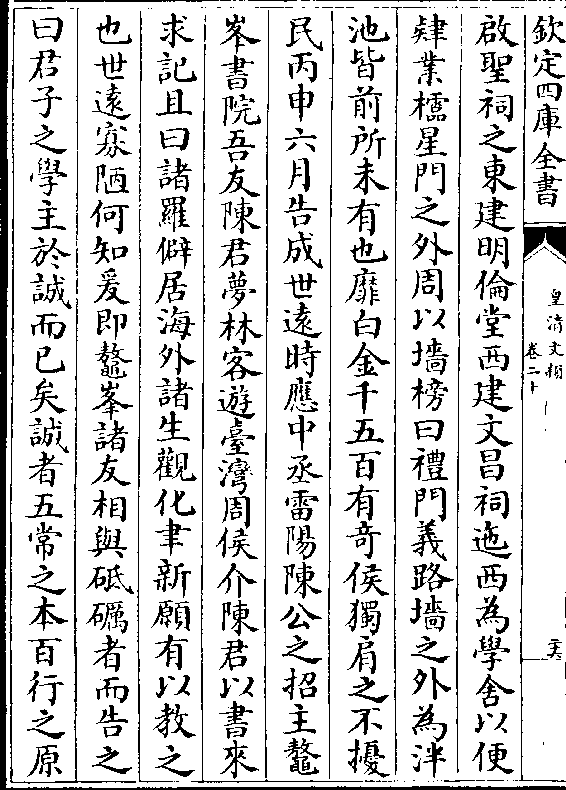 欽定四庫全書
皇清文穎
卷二十
啟聖祠之東建明倫堂西建文昌祠迤西為學舍以便
肄業櫺星門之外周以墻榜曰禮門義路墻之外為泮
池皆前所未有也靡白金千五百有奇侯獨肩之不擾
民丙申六月告成世遠時應中丞雷陽陳公之招主鼇
峯書院吾友陳君夢林客遊臺灣周侯介陳君以書來
求記且曰諸羅僻居海外諸生觀化聿新願有以教之
也世遠寡陋何知爰即鼇峯諸友相與砥礪者而告之
曰君子之學主於誠而已矣誠者五常之本百行之原